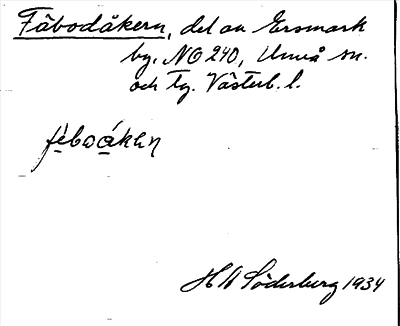 Fäbodåkern, del av Ersmark
by, NO 240, Umeå sn.
och tg. Västerb. l.
H A Söderburg 1934